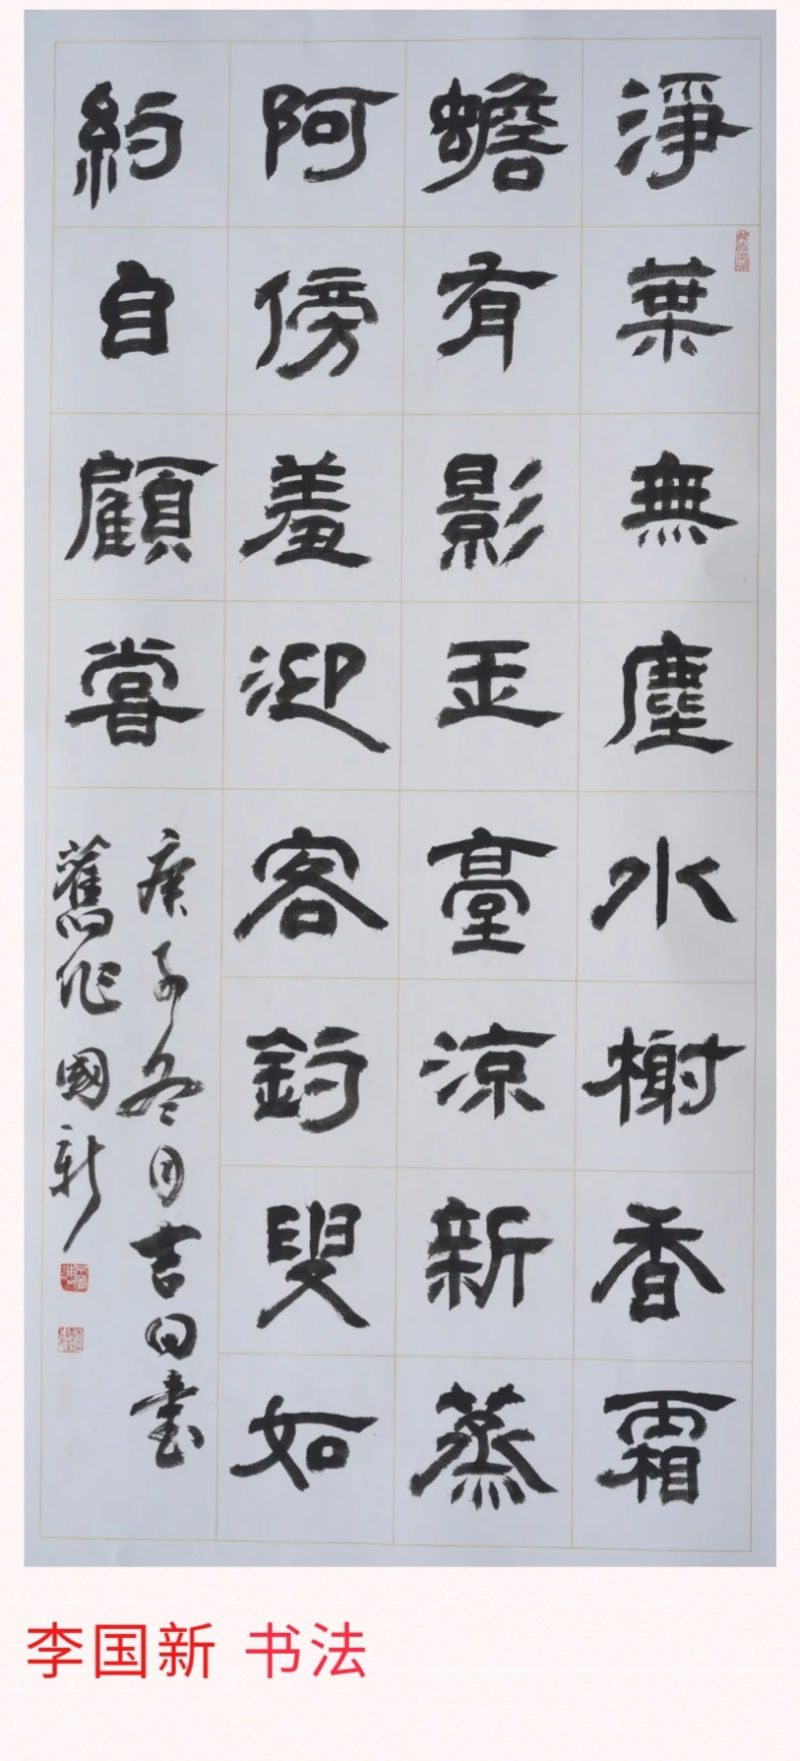 淨葉無塵水榭香霜
蟾有影玉臺涼新蒸
阿傍羞迎客釣叟如
約自顧嘗
庚子冬月吉日書
舊作國新
李国新 书法